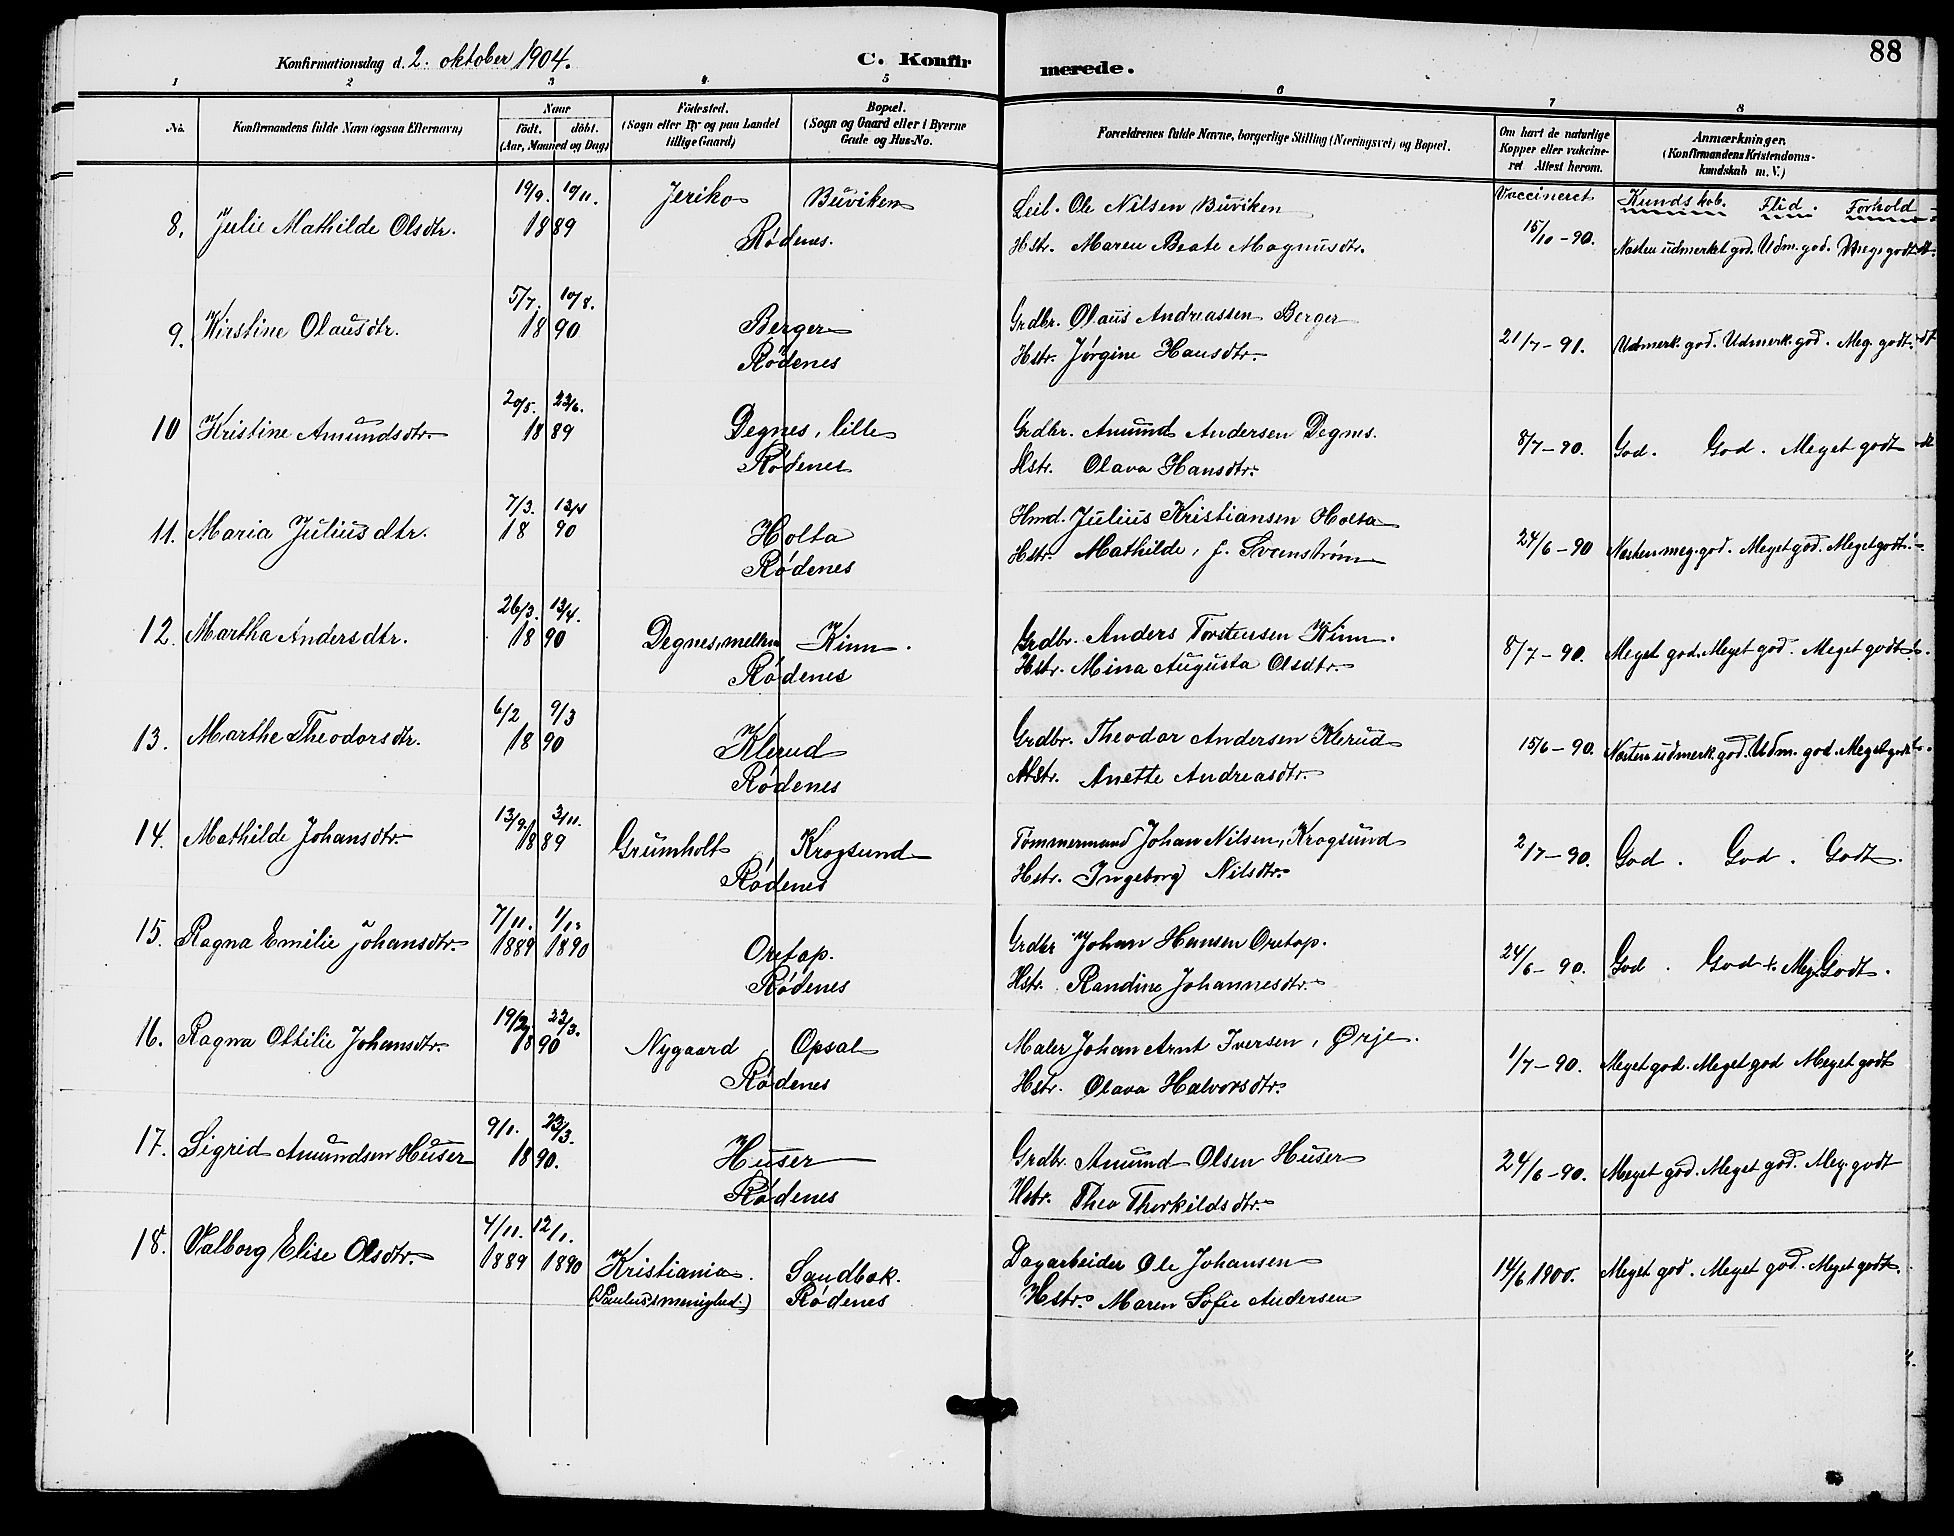 88
Konfirmationsdag d. 2. oktober 1904.
C. Konfirmerede.
1 2 3 4 5 6 7 8
No. Konfirmandens fulde Navn (ogsaa Efternavn) Naar født. døbt. (Aar, Maaned og Dag) Födested. (Sogn eller By og paa Landet tillige Gaard) Bopæl. (Sogn og Gaard eller i Byerne Gade og Hus-No. Forældrenes fulde Navne, borgerlige Stilling (Næringsvei) og Bopæl. Om havt de naturlige Kopper eller vakcineret Attest herom. Anmærkninger. (Konfirmandens Kristendomskundskab m. V.)
Vaccineret Kundskab. Flid. Forhold
8. Julie Mathilde Olsdtr. 19/9. 10/11. 1889 Jeriko Buviken Rødenes.
Leil. Ole Nilsen Buviken
Hstr. Maren Beate Magnusdtr. 15/10-90. Næsten udmerket god. Udm. god. Meg. godt
9. Kirstine Olausdtr. 5/7. 10/8. 1890 Berger Rødenes
Grdbr. Olaus Andreassen Berger
Hstr. Jørgine Hansdtr. 21/7-91. Udmerk. god. Udmerk. god. Meg. godt.
10 Kristine Amundsdtr. 20/5. 23/6. 1889 Degnes, lille Rødenes
Grdbr. Amund Andersen Degnes.
Hstr. Olava Hansdtr. 8/7-90. God. God. Meget godt
11. Maria Juliusdtr. 7/3. 13/4 1890 Holta Rødenes
Hmd. Julius Kristiansen Holta
Hstr. Mathilde, f. Svenstrøm 24/6-90 Næsten meg. god. Meget god. Meget godt.
12. Martha Andersdtr. 26/3. 13/4. 1890 Degnes, mellem Kinn. Rødenes
Grdbr. Anders Torstensen Kinn.
Hstr. Mina Augusta Olsdtr. 8/7-90. Meget god. Meget god. Meget godt.
13. Marthe Theodorsdtr. 6/2 9/3 1890 Klerud Rødenes
Grdbr. Theodor Andersen Klerud
Hstr. Anette Andreasdtr. 15/6-90. Næsten udmerk. god. Udm. god. Meget godt
14. Mathilde Johansdtr. 13/9. 3/11. 1889 Grumholt Krogsund Rødenes
Tømmermand Johan Nilsen, Krogsund
Hstr. Ingeborg Nilsdtr. 2/7-90. God. God. Godt.
15. Ragna Emilie Johansdtr. 7/11. 1889 1890 Oretop. Rødenes
Grdbr Johan Hansen Oretop.
Hstr. Randine Johannesdtr. 24/6-90. God. God. Meg. Godt.
16. Ragna Ottilie Johansdtr. 23/3. 1890 Nygaard Opsal Rødenes
Maler Johan Arnt Iversen, Ørje.
Hstr. Olava Halvorsdtr. 1/7-90. Meget god. Meget god Meget godt
17. Sigrid Amundsen Huser 9/1. 23/3. 1890. Huser Rødenes
Grdbr. Amund Olsen Huser
Hstr. Thea Thorkildsdtr. 24/6-90. Meget god. Meget god. Meg. godt
18. Valborg Elise Olsdtr. 4/11. 12/1. 1889 1890 Kristiania. (Paulus's menighed.) Sandbæk. Rødenes
Dagarbeider Ole Johansen
Hstr. Maren Sofie Andersen 14/6 1900. Meget god. Meget god. Meget godt.